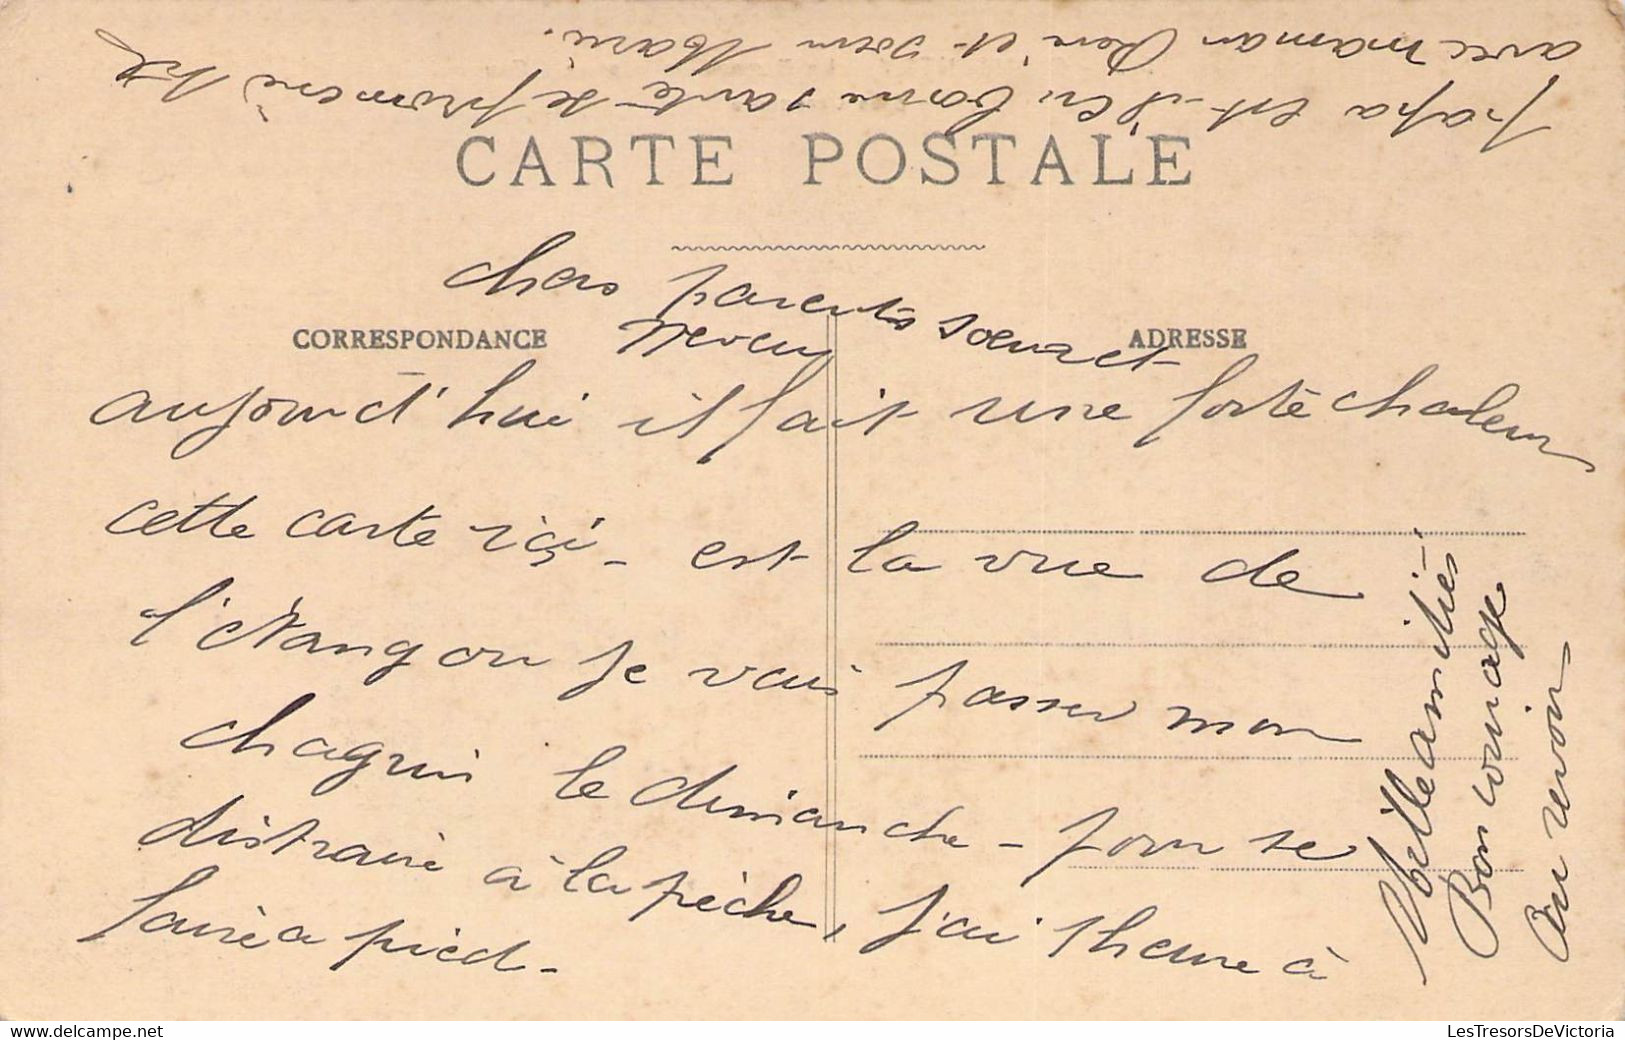 CARTE POSTALE
chers parents soeur et
neveu
CORRESPONDANCE
ADRESSE
aujourd'hui il fait une forte chaleur
cette carte içi - est la vue de
l'étang ou je vais passer mon
chagrin le dimanche - pour se
distraire à la pêche, j'ai 1 heure à
faire a pied -
Mille amitiés -
Bon courage
Au revoir
papa est-il en bonne santé se promene t'il
avec maman René et soeur Marie.
www.delcampe.net
LesTresorsDeVictoria